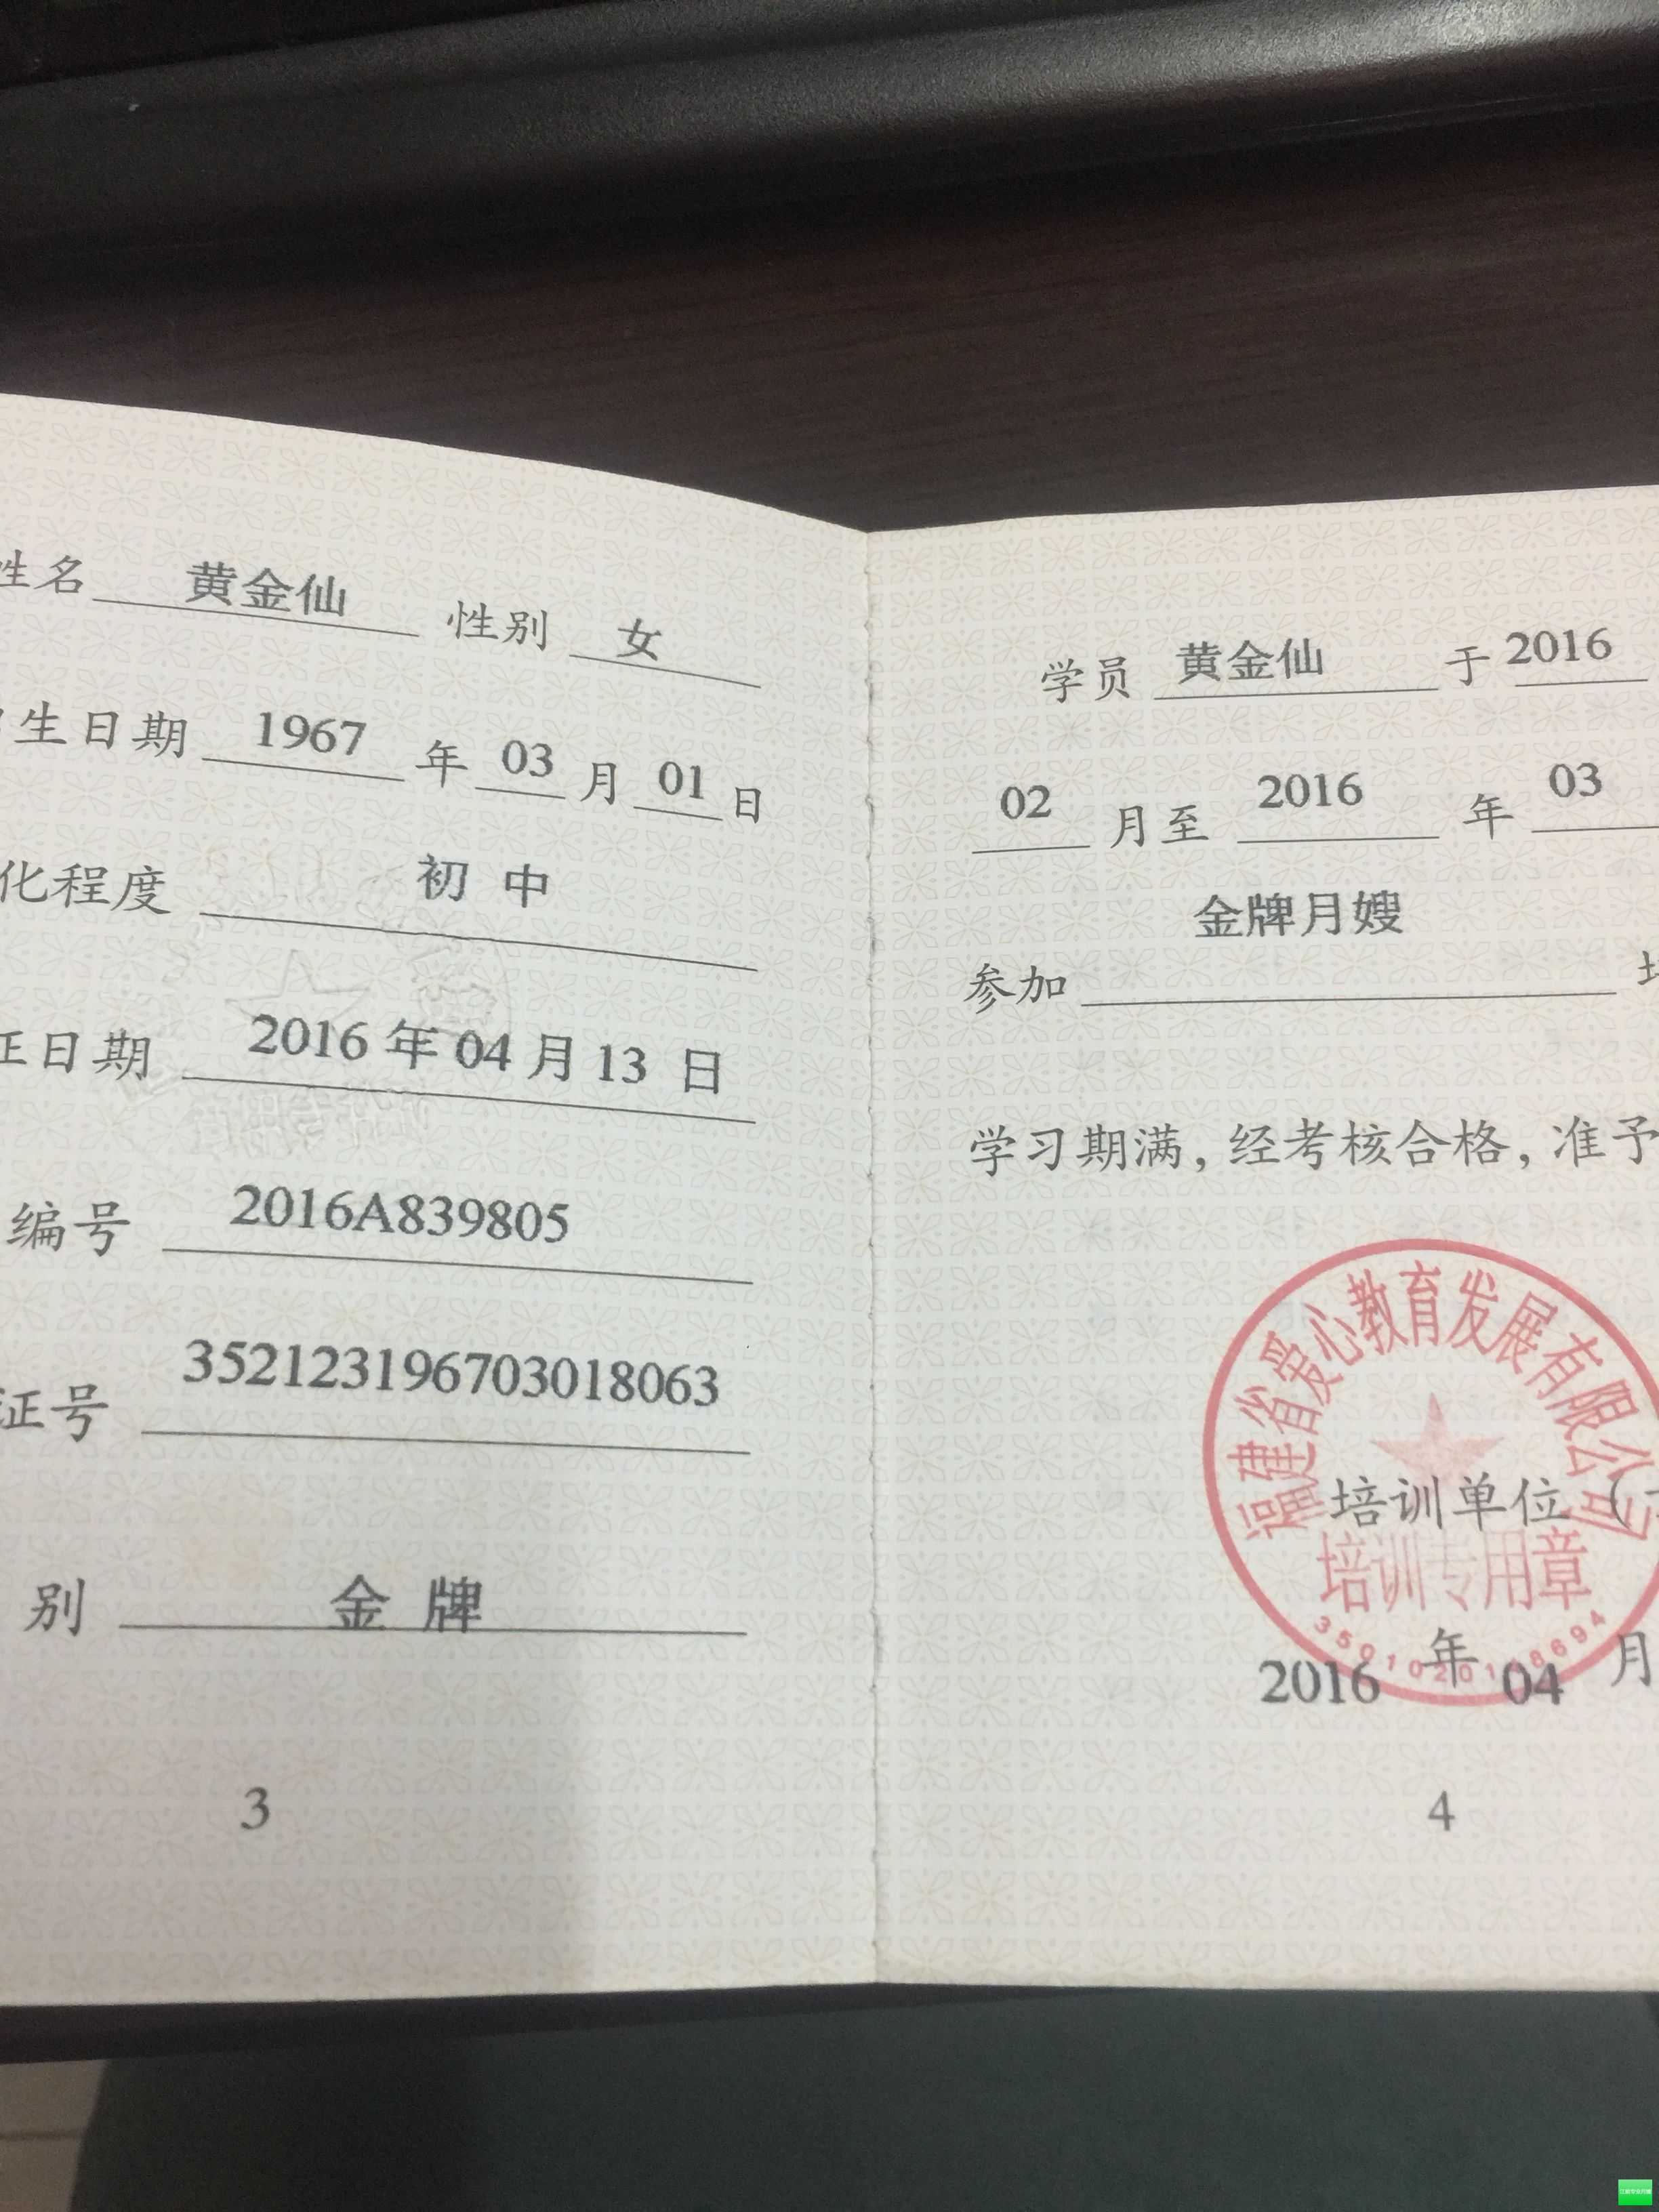 姓名 黄金仙 性别 女
生日期 1967 年 03 月 01 日
化程度 初中
证日期 2016 年 04 月 13 日
编号 2016A839805
证号 352123196703018063
别 金牌
3
学员 黄金仙 于 2016
02 月至 2016 年 03
参加 金牌月嫂
学习期满，经考核合格，准予
福建省爱心教育发展有限公司
培训单位（
培训专用章
2016 年 04 月
4